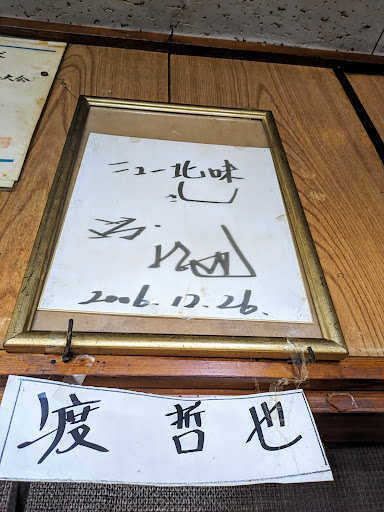 大会
ニュー北味
さん江
2006.12.26.
渡哲也